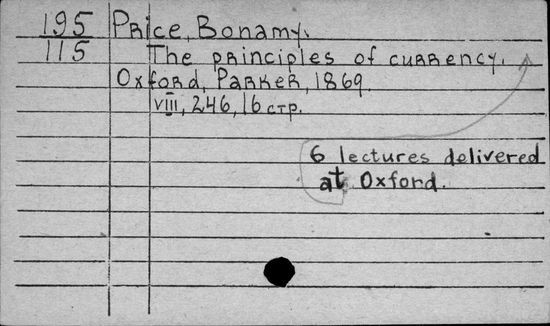 195 Price, Bonamy.
115 The principles of currency.
Oxford, Parker, 1869.
VIII, 246, 16 стр.
6 lectures delivered
at Oxford.